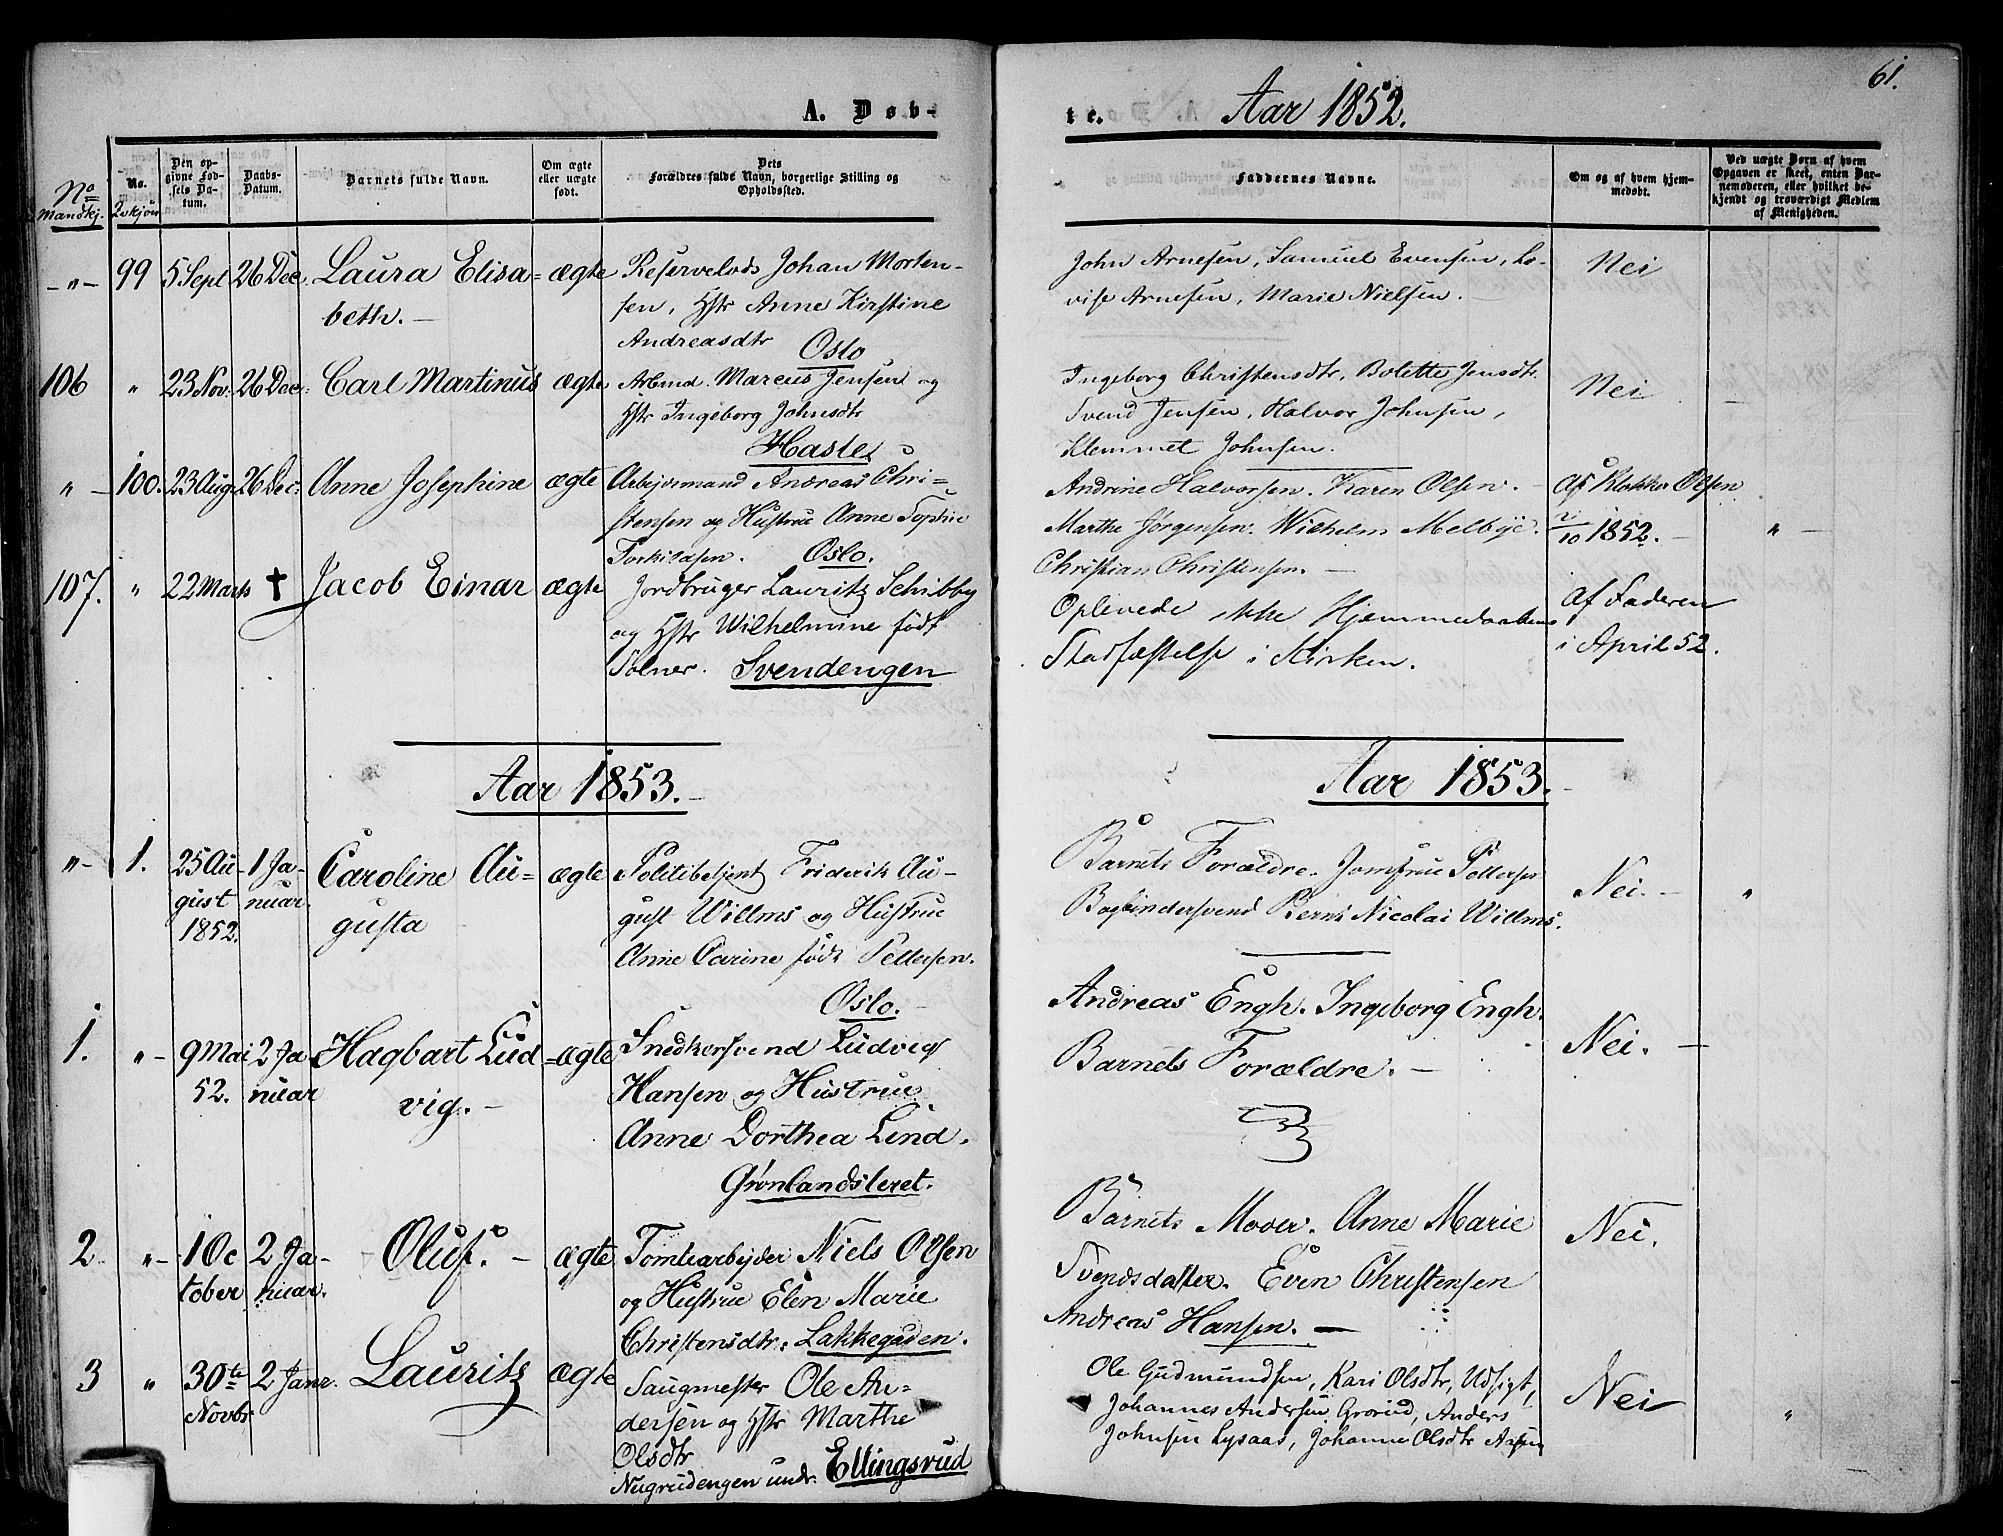 A. Døb-
te.
Aar 1852.
61.
No Mandkj.
No. Qvkjøn
Den opgivne Fødsels Datum.
Daabs-Datum.
Barnets fulde Navn.
Om ægte eller uægte født.
Dets Forældres fulde Navn, borgerlige Stilling og Opholdssted.
Faddernes Navne.
Om og af hvem hjemmedøbt.
Ved uægte Børn af hvem Opgaven er skeet, enten Barnemoderen, eller hvilket bekjendt og troværdigt Medlem af Menigheden.
-"- 99 5 Sept 26 Dec. Laura Elisa= ægte
beth. -
Reservelods Johan Morten-
sen, Hstr Anne Kirstine
Andreasdtr Oslo
John Arnesen, Samuel Evensen, Lo-
vise Arnesen, Marie Nielsen. -
Nei
106 " 23 Nov: 26 Dec: Carl Martinus ægte
Arbmd. Marcus Jensen og
Hstr Ingeborg Johnsdtr
Hasle
Ingeborg Christensdtr, Bolette Jensdtr.
Svend Jensen, Halvor Johnsen,
Klemmet Johnsen.
Nei
" - 100. 23 Aug. 26 Dec: Anne Josephine ægte
Arbejdsmand Andreas Chri=
stensen og Hustrue Anne Sophie
Torkildsen. Oslo.
Andrine Halvorsen. Karen Olsen. -
Marthe Jørgensen. Wilhelm Melbye.
Christian Christensen. -
Af Klokker Olsen
/10 1852. -
" -
107. " 22 Marts † Jacob Einar ægte
Jordbruger Lauritz Schibby
og Hstr Wilhelmine født
Tolner. Svendengen
Oplevede ikke Hjemmedaabens
Stadfæstelse i Kirken.
Af Faderen
i April 52.
Aar 1853. -
Aar 1853. -
"- 1. 25 Au-
gust
1852.
1 Ja-
nuar.
Caroline Au=
gusta
ægte
Politibetjent Friderik Au-
gust Willms og Hustrue
Anne Carine født Pettersen.
Oslo. -
Barnets Forældre. Jomfrue Pettersen
Bogbindersvend Bernt Nicolai Willms.
Nei. -
"
1. "- 9 Mai
52.
2 Ja
nuar
Hagbart Lud=
vig. -
ægte
Snedkersvend Ludvig
Hansen og Hustrue
Anne Dorthea Lind.
Grønlandsleret.
Andreas Engh. Ingeborg Engh.
Barnets Forældre. -
Nei. -
2 "- 1 Oc
tober
2 Ja-
nuar.
Oluf. -
ægte
Tomtearbejder Niels Olsen
og Hustrue Elen Marie
Christensdtr. Lakkegaden.
Barnets Moder. Anne Marie
Svendsdatter. Even Christensen
Andreas Hansen. -
Nei.
3 " 30te
Novbr
2 Janr.
Lauritz
ægte
Saugmester Ole An=
dersen og Hstr Marthe
Olsdtr
Nugrudengen undr. Ellingsrud
Ole Gudmundsen, Kari Olsdtr, Udsigt,
Johannes Andersen Grorud, Anders
Johnsen Lysaas, Johanne Olsdtr
Nei
"